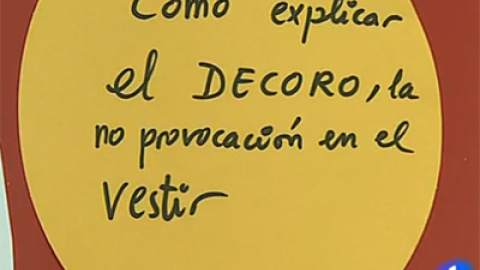 Cómo explicar
el DECORO, la
no provocación en el
vestir